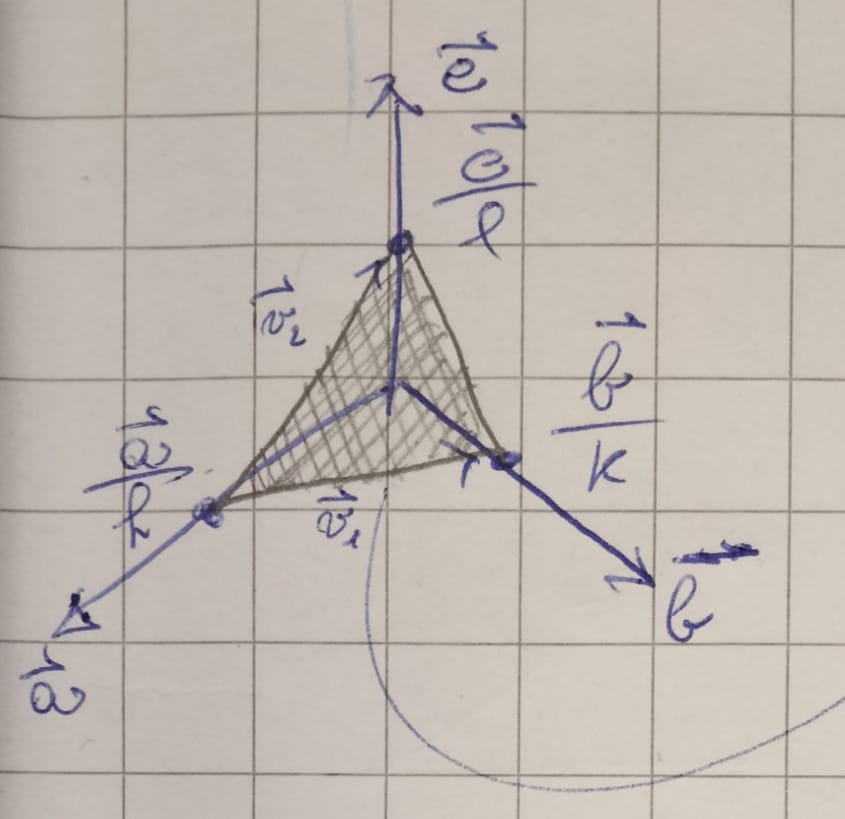 c⃗
c⃗/l
v⃗₂
b⃗/k
a⃗/h
v⃗₁
b⃗
a⃗